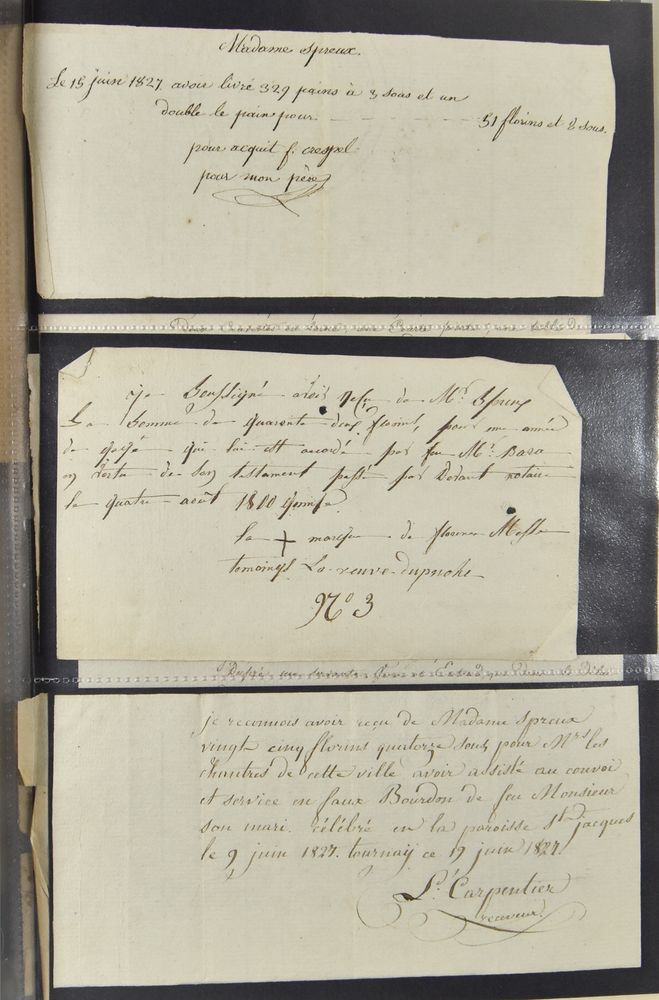 Madame Spreux.
Le 15 juin 1827 avoir livré 329 pains à 3 sous et un
double le pain pour 51 florins et 8 sous.
pour acquit f. crespel
pour mon père
je soussigné avoir de Mr. Spreux
La somme de quarante deux florins, pour une année
de gage qui lui est accordé par feu Mr. Bara
en vertu de son testament passé par devant notaire
le quatre août 1800
la + marque de florence
temoings La veuve dupuche
No 3
je reconnois avoir reçu de Madame Spreux
vingt cinq florins quatorze sous pour Mrs les
Chantres de cette ville avoir assisté au convoi
et service en faux Bourdon de feu Monsieur
son mari. célébré en la paroisse St. jacques
le 9 juin 1827. tournaij ce 19 juin 1827.
Ld. Carpentier
receveur.